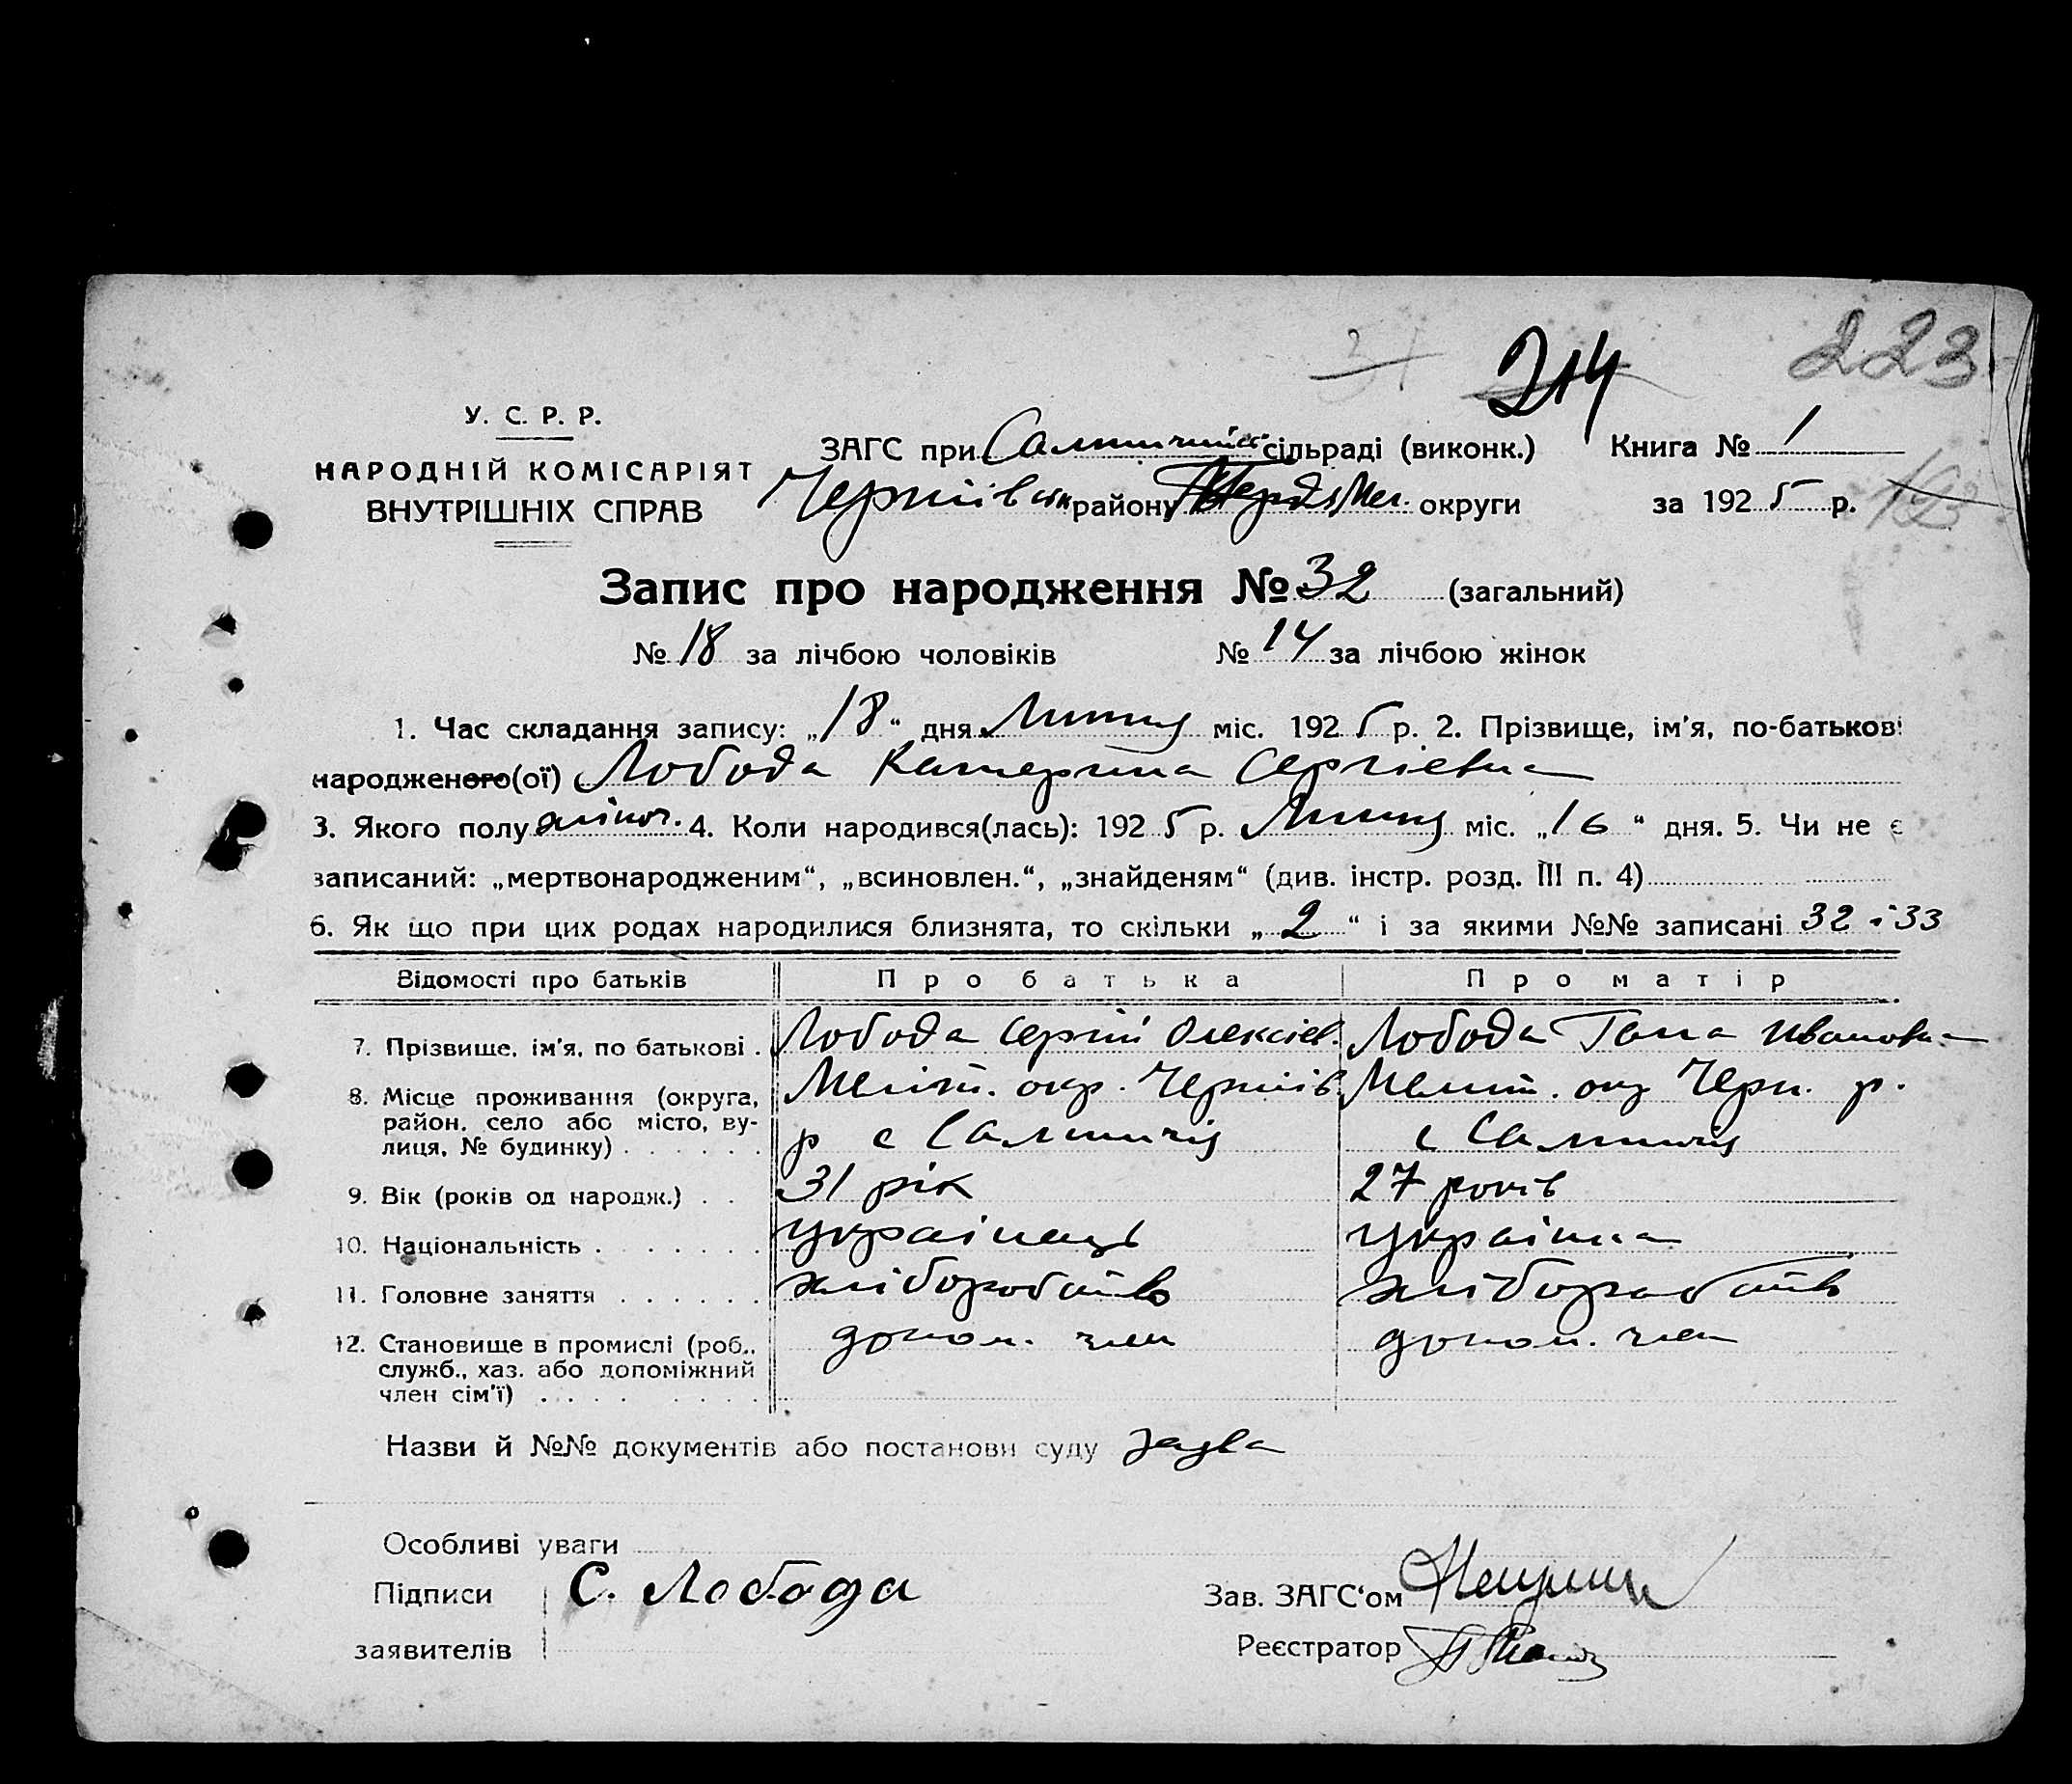 223
214
У. С. Р. Р.
НАРОДНІЙ КОМІСАРІЯТ
ВНУТРІШНІХ СПРАВ
ЗАГС при сільраді (виконк.) Книга № 1
Чернігівськ району Мел. округи за 1925 р.
Запис про народження № 32 (загальний)
№ 18 за лічбою чоловіків № 14 за лічбою жінок
1. Час складання запису: „18“ дня Липня міс. 1925 р. 2. Прізвище, ім'я, по-батькові
народженого(ої) Лобода Катерина Сергієвна
3. Якого полу жіноч. 4. Коли народився(лась): 1925 р. Липня міс. „16“ дня. 5. Чи не є
записаний: „мертвонародженим“, „всиновлен.“, „знайденям“ (див. інстр. розд. III п. 4)
6. Як що при цих родах народилися близнята, то скільки „2“ і за якими №№ записані 32 і 33
Відомості про батьків Про батька Про матір
7. Прізвище, ім'я, по батькові . Лобода Сергій Олексієв. Лобода Ганна Ивановна
8. Місце проживання (округа, район, село або місто, вулиця, № будинку) Меліт. окр. Чернігів. Меліт. окр Черн. р.
р с Салтичія с Салтичія
9. Вік (років од народж.) . . 31 рік 27 років
10. Національність . українець українка
11. Головне заняття . хліборобство хліборобство
12. Становище в промислі (роб., служб., хаз. або допоміжний член сім'ї) допом. член допом. член
Назви й №№ документів або постанови суду заява
Особливі уваги
Підписи С. Лобода Зав. ЗАГС'ом
заявителів Реєстратор